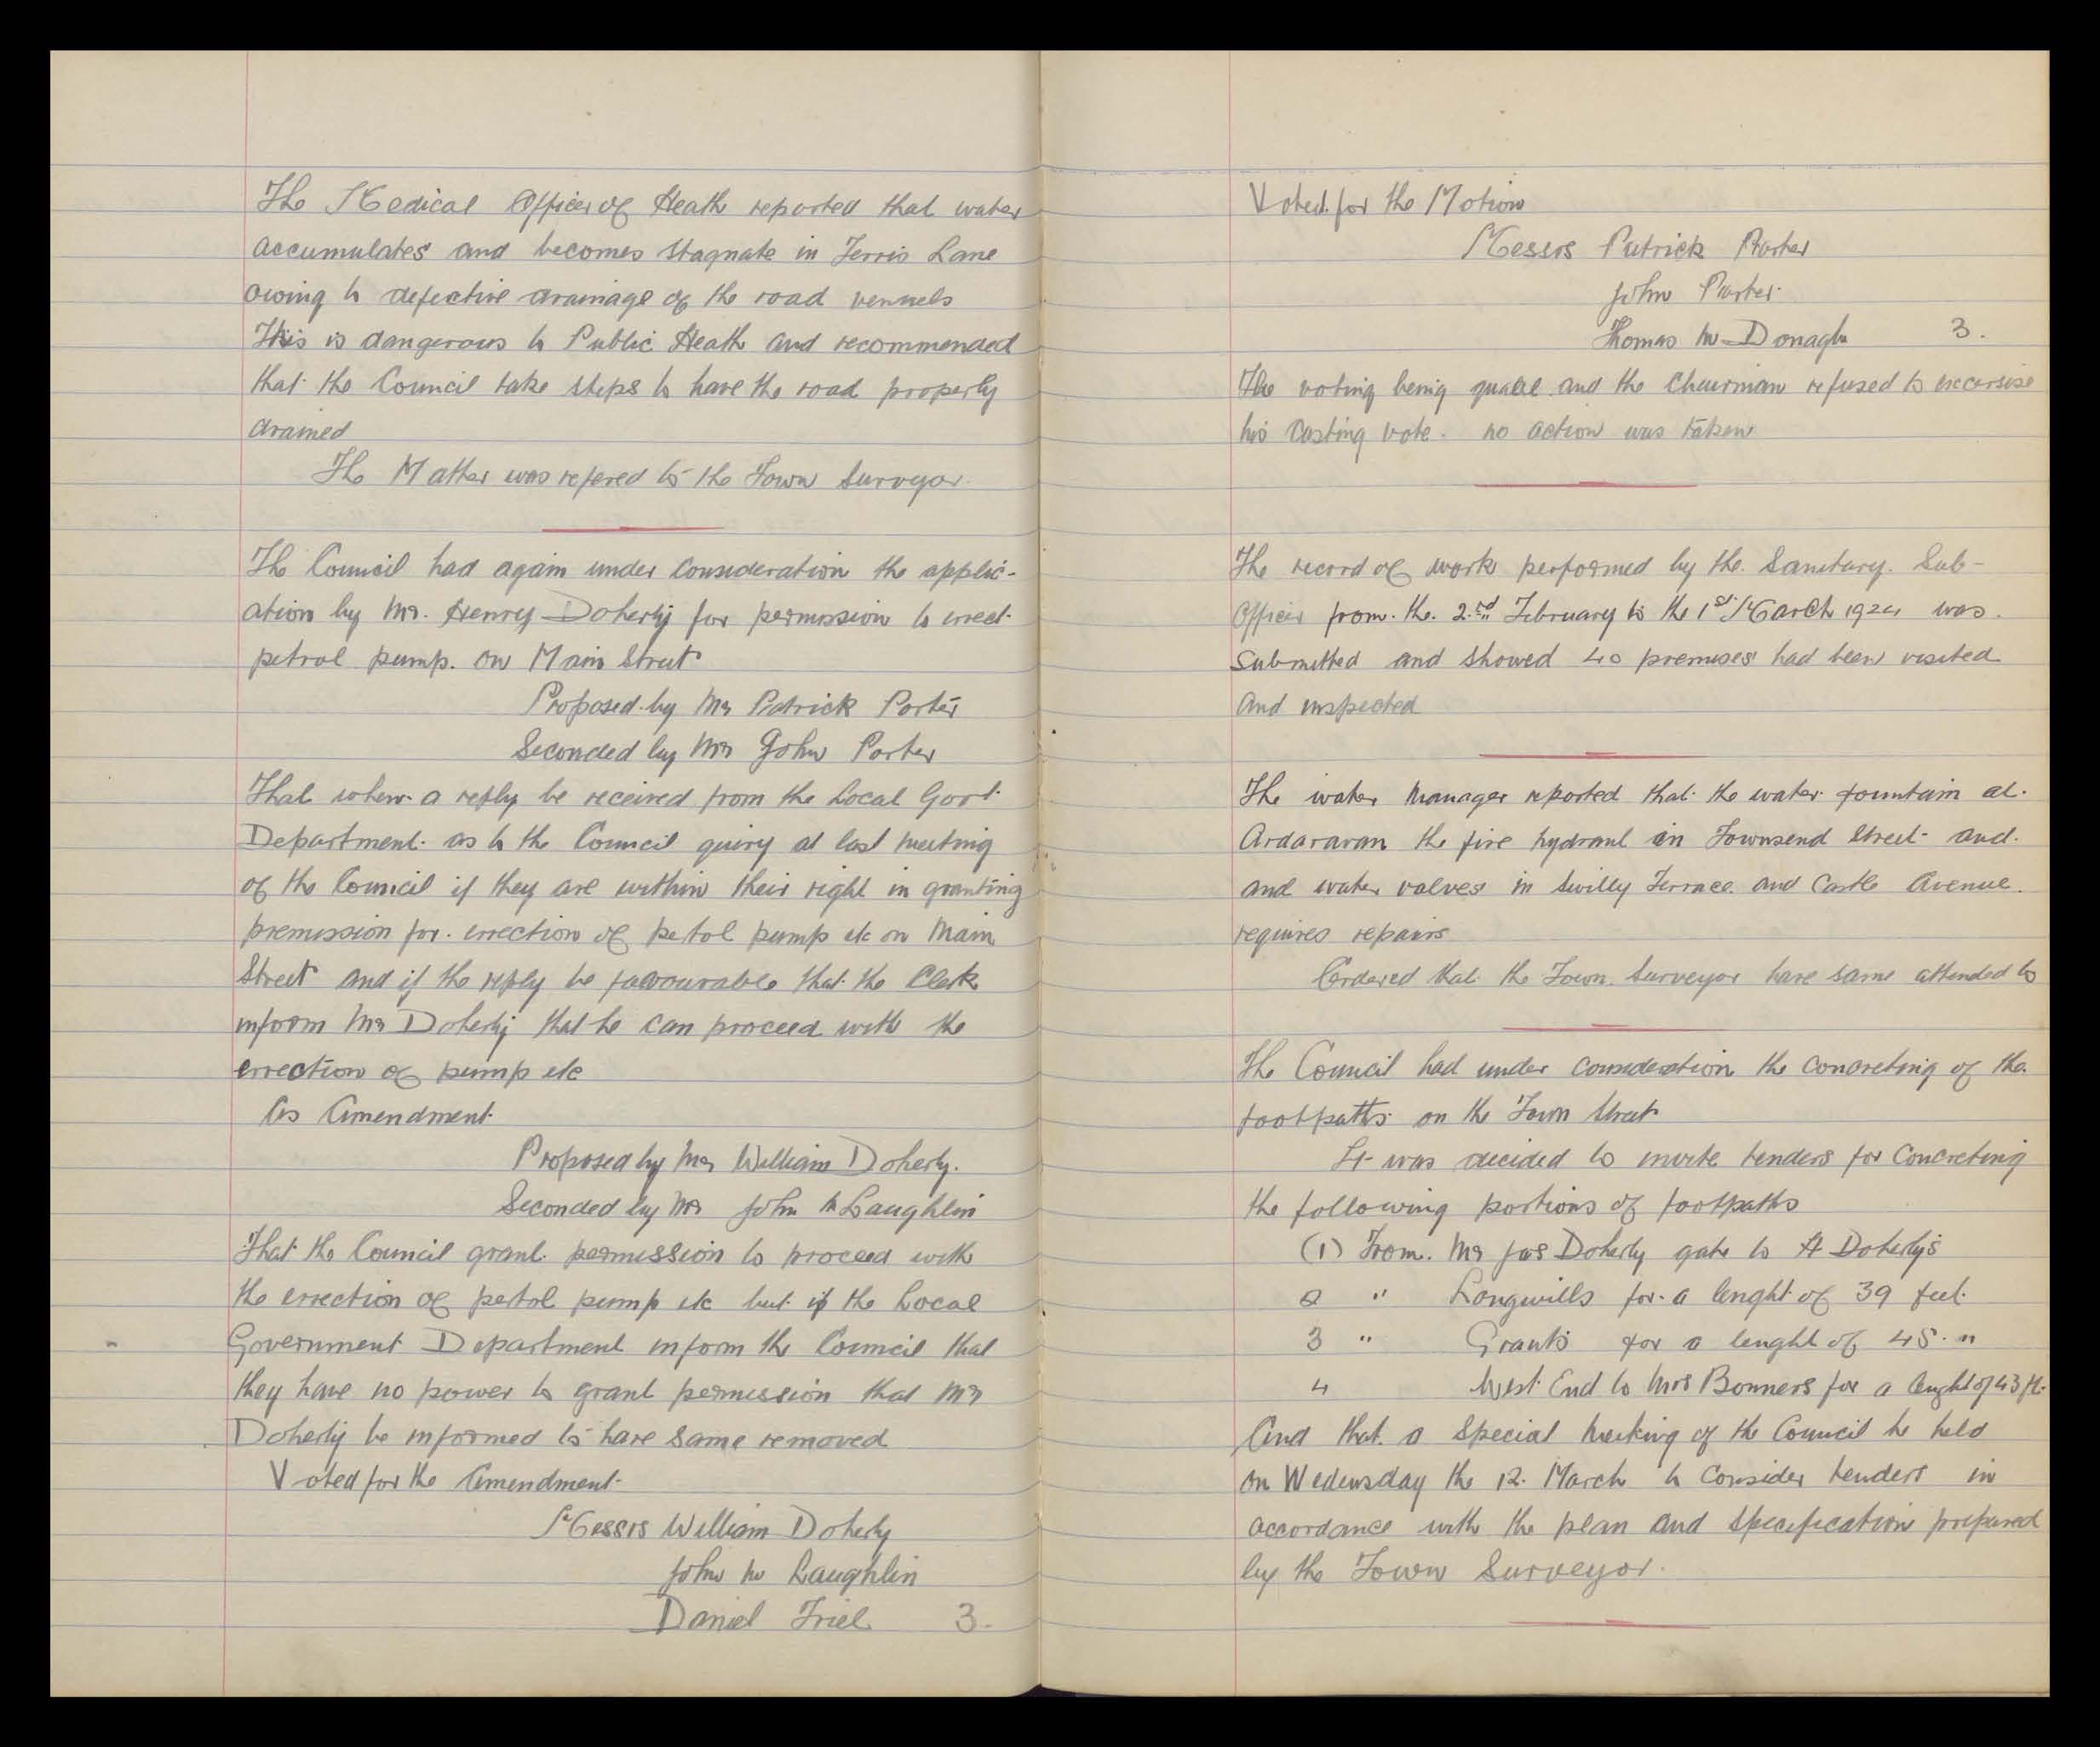 The Medical Officer of Heath reported that water
accumulates and becomes stagnate in Ferris Lane
owing to defective drainage of the road vennels
This is dangerous to Public Heath and recommended
that the Council take steps to have the road properly
drained
The Matter was refered to the Town Surveyor.
The Council had again under consideration the applic-
ation by Mr. Henry Doherty for permission to erect
petrol pump. on Main Street
Proposed by Mr Patrick Porter
Seconded by Mr John Porter
That when a reply be received from the Local Govt.
Department. as to the Council quiry at last meeting
of the Council if they are within their right in granting
premission for. errection of petol pump etc on Main
Street and if the reply be favourable that the Clerk
inform Mr Doherty that he can proceed with the
errection of pump etc
As Amendment.
Proposed by Mr William Doherty.
Seconded by Mr John McLaughlin
That the Council grant permission to proceed with
the errection of pertol pump etc but if the Local
Government Department inform the Council that
they have no power to grant permission that Mr
Doherty be informed to have same removed
Voted for the Amendment.
Messrs William Doherty
John Mc Laughlin
Daniel Friel 3.
Voted for the Motion
Messrs Patrick Porter
John Porter
Thomas Mc Donagh 3.
The voting being and the Chairman refused to
his casting vote. no action was taken
The record of work performed by the. Sanitary. Sub-
Officer from. the. 2nd February to the 1st March 1924 was.
submitted and showed 40 premises had been visited
and inspected
The water Manager reported that the water fountain at.
Ardaravan the fire hydrant in Townsend Street and.
and water valves in Swilly Terrace and Castle Avenue.
requires repairs
Ordered that the Town. Surveyor have same attended to
The Council had under consideration the concreting of the
footpaths on the Town Street
It was decided to invite tenders for Concreting
the following portions of footpaths
(1) From. Mr Jas Doherty gate to H Doherty's
2 " Longwills for a lenght of 39 feet.
3 " Grants for a lenght of 45. "
4 West End to Mrs Bonners for a lenght of 43 ft.
And that. a Special Meeting of the Council be held
on Wedensday the 12. March to consider tenders in
accordance with the plan and specification prepared
by the Town Surveyor.